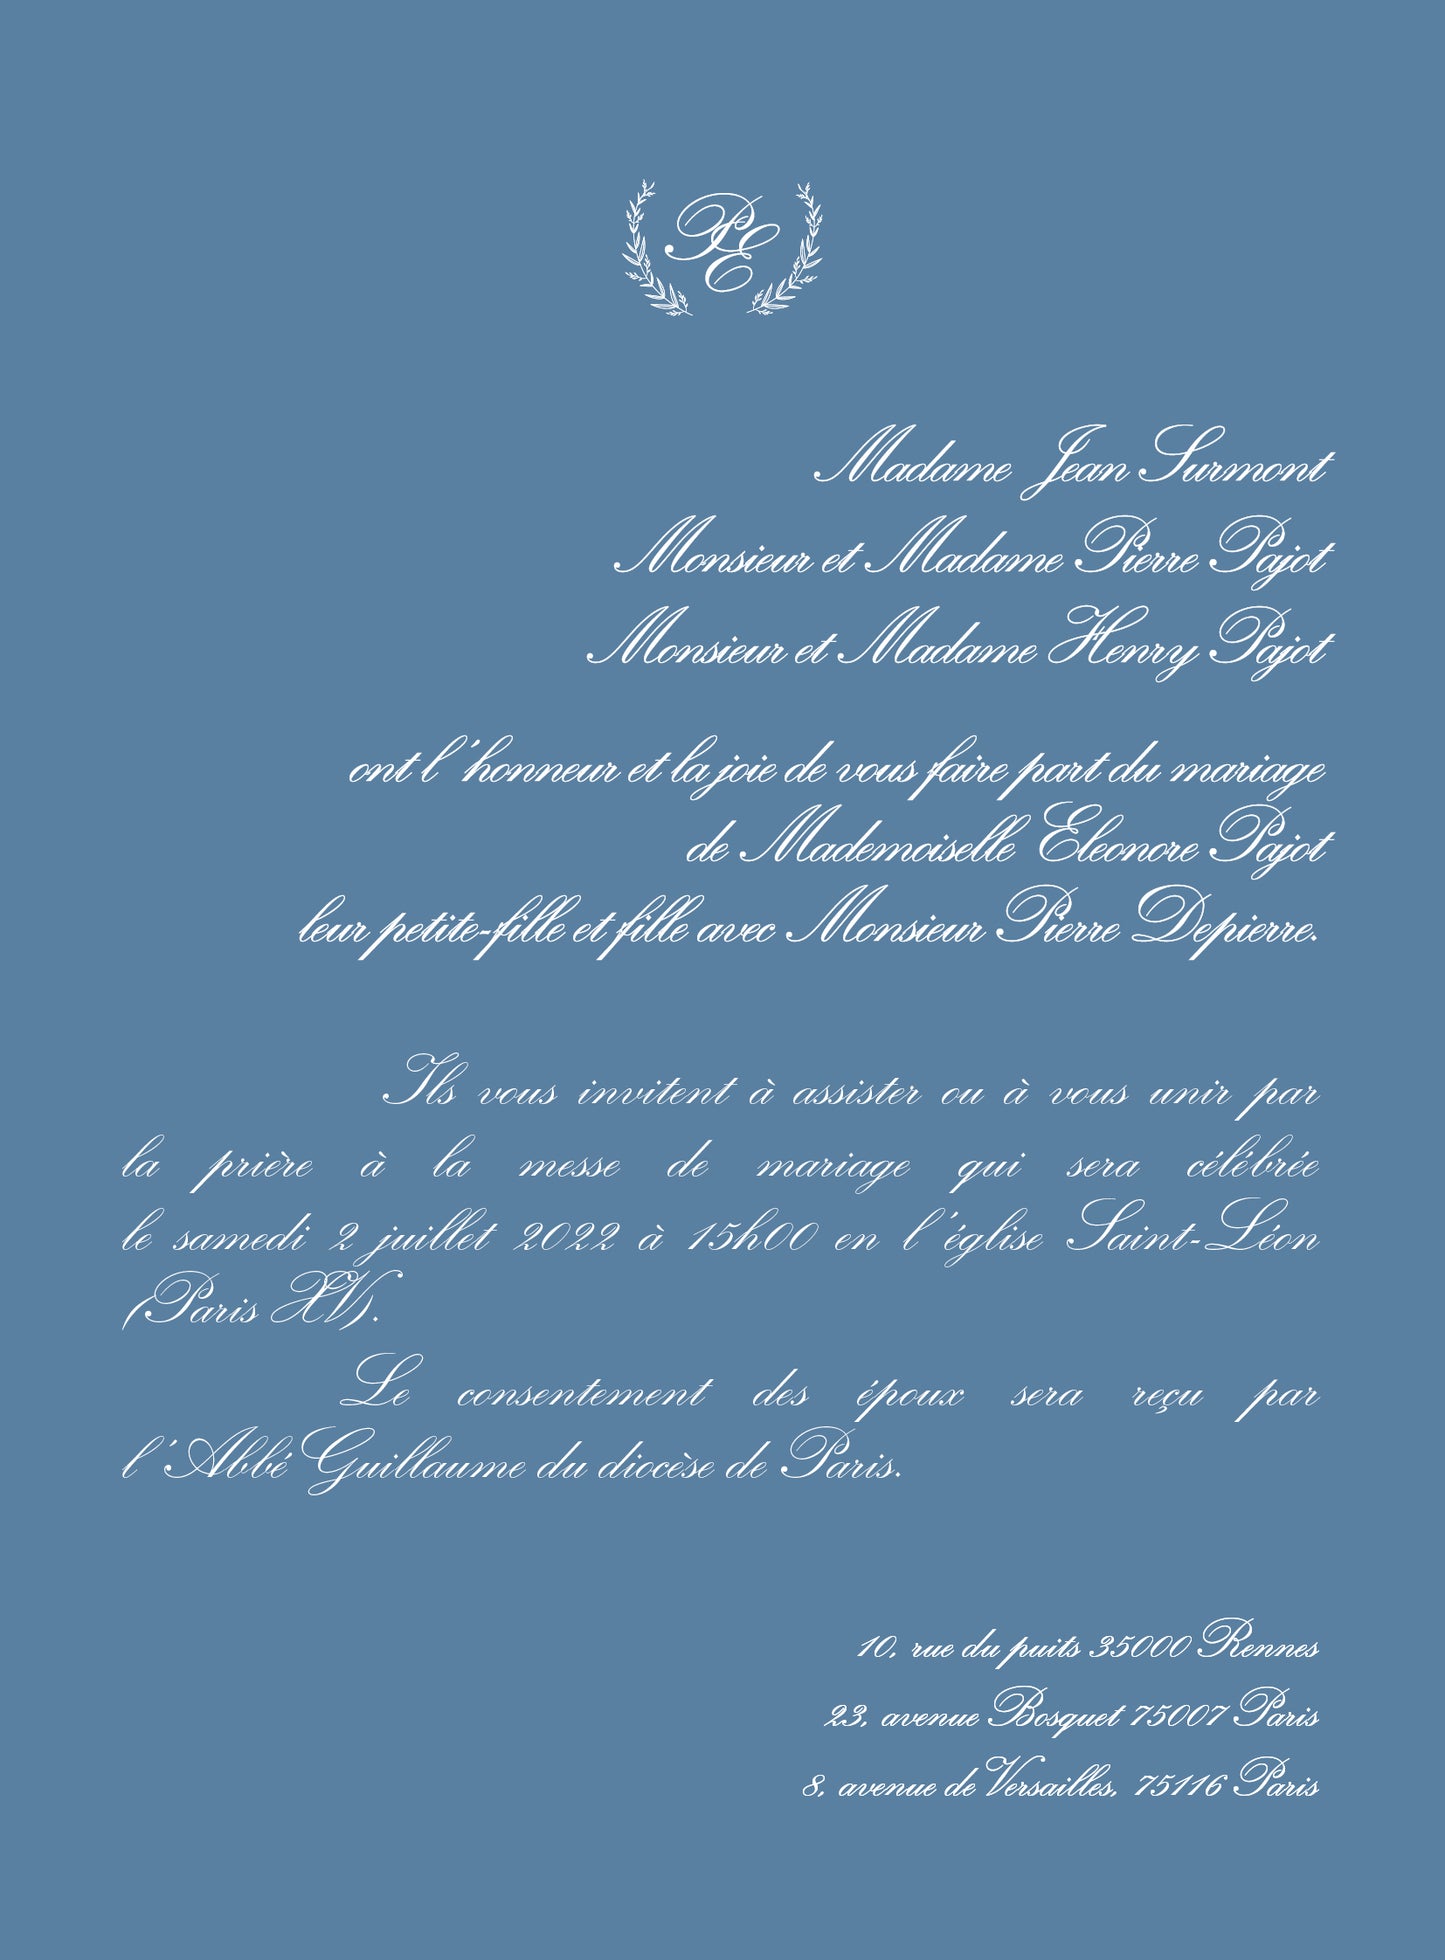 PE
Madame Jean Surmont
Monsieur et Madame Pierre Pajot
Monsieur et Madame Henry Pajot
ont l'honneur et la joie de vous faire part du mariage
de Mademoiselle Eleonore Pajot
leur petite-fille et fille avec Monsieur Pierre Depierre.
Ils vous invitent à assister ou à vous unir par
la prière à la messe de mariage qui sera célébrée
le samedi 2 juillet 2022 à 15h00 en l'église Saint-Léon
(Paris XV).
Le consentement des époux sera reçu par
l'Abbé Guillaume du diocèse de Paris.
10, rue du puits 35000 Rennes
23, avenue Bosquet 75007 Paris
8, avenue de Versailles, 75116 Paris